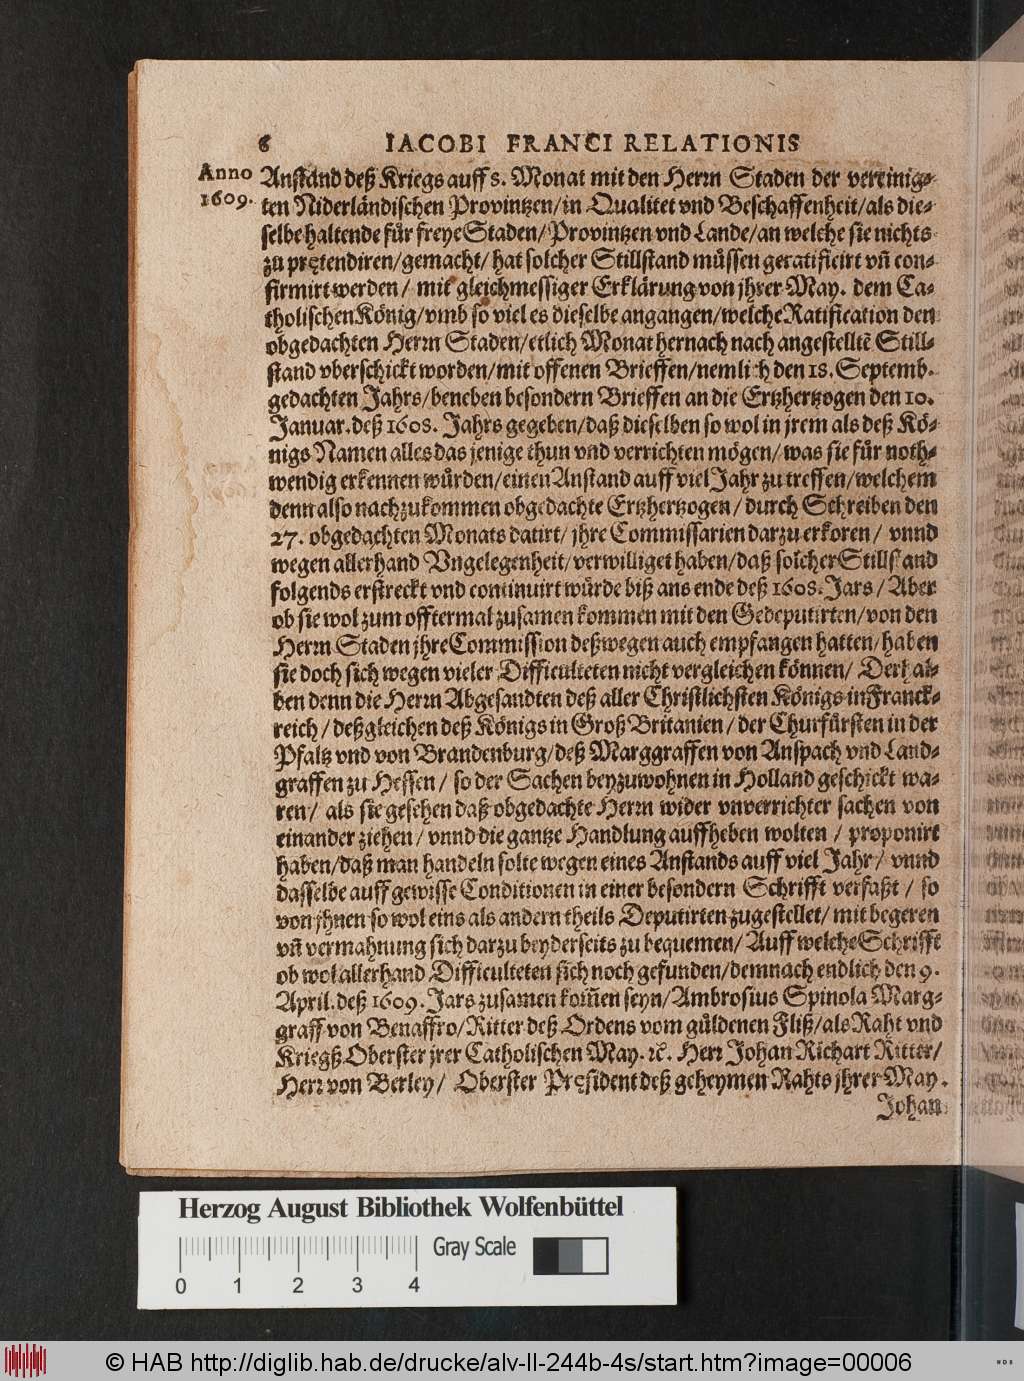 6 IACOBI FRANCI RELATIONIS
Anno
1609.
Anstand deß Kriegs auff 8. Monat mit den Herrn Staden der vereinig-
ten Niderländischen Provintzen/in Qualitet vnd Beschaffenheit/als die-
selbe haltende für freye Staden/Provintzen vnd Lande/an welche sie nichts
zu prętendiren/gemacht/hat solcher Stillstand müssen geratificirt vñ con-
firmirt werden/ mit gleichmessiger Erklärung von jhrer May. dem Ca-
tholischen König/vmb so viel es dieselbe angangen/welche Ratification den
obgedachten Herrn Staden/etlich Monat hernach nach angestelltē Still-
stand vberschickt worden/mit offenen Brieffen/nemlich den 18. Septemb.
gedachten Jahrs/beneben besondern Brieffen an die Ertzhertzogen den 10.
Januar. deß 1608. Jahrs gegeben/daß dieselben so wol in jrem als deß Kö-
nigs Namen alles das jenige thun vnd verrichten mögen/was sie für noth-
wendig erkennen würden/einen Anstand auff viel Jahr zu treffen/welchem
denn also nachzukommen obgedachte Ertzhertzogen/ durch Schreiben den
27. obgedachten Monats datirt/ jhre Commissarien darzu erkoren/ vnnd
wegen allerhand Vngelegenheit/verwilliget haben/daß solcher Stillstand
folgends erstreckt vnd continuirt würde biß ans ende deß 1608. Jars/ Aber
ob sie wol zum offtermal zusamen kommen mit den Gedeputirten/von den
Herrn Staden jhre Commission deßwegen auch empfangen hatten/haben
sie doch sich wegen vieler Difficulteten nicht vergleichen können/ Derhal-
ben denn die Herrn Abgesandten deß aller Christlichsten Königs in Franck-
reich/ deßgleichen deß Königs in Groß Britanien/ der Churfürsten in der
Pfaltz vnd von Brandenburg/deß Marggraffen von Anspach vnd Land-
graffen zu Hessen/ so der Sachen beyzuwohnen in Holland geschickt wa-
ren/ als sie gesehen daß obgedachte Herrn wider vnverrichter sachen von
einander ziehen/ vnnd die gantze Handlung auffheben wolten / proponirt
haben/daß man handeln solte wegen eines Anstands auff viel Jahr/ vnnd
dasselbe auff gewisse Conditionen in einer besondern Schrifft verfaßt / so
von jhnen so wol eins als andern theils Deputirten zugestellet/ mit begeren
vñ vermahnung sich darzu beyderseits zu bequemen/ Auff welche Schrifft
ob wol allerhand Difficulteten sich noch gefunden/demnach endlich den 9.
April. deß 1609. Jars zusamen kom̃en seyn/Ambrosius Spinola Marg-
graff von Benaffro/Ritter deß Ordens vom güldenen Fliß/als Raht vnd
Kriegß Oberster jrer Catholischen May. ꝛc. Herr Johan Richart Ritter/
Herr von Berley/ Oberster Pręsident deß geheymen Rahts jhrer May.
Johan
Herzog August Bibliothek Wolfenbüttel
Gray Scale
0 1 2 3 4
© HAB http://diglib.hab.de/drucke/alv-ll-244b-4s/start.htm?image=00006